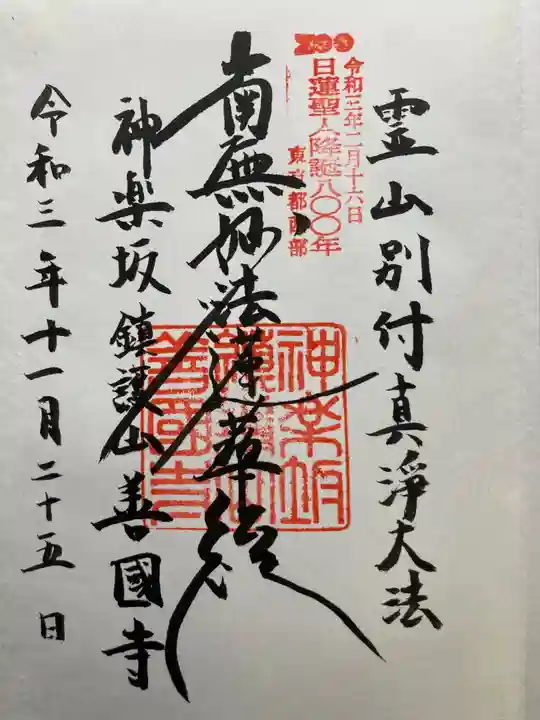 霊山別付真淨大法
令和三年二月十六日
日蓮聖人降誕八〇〇年
東京都西部
南無妙法蓮華経
神楽坂鎮護山善國寺
令和三年十一月二十五日
神楽坂
鎮護山
善國寺